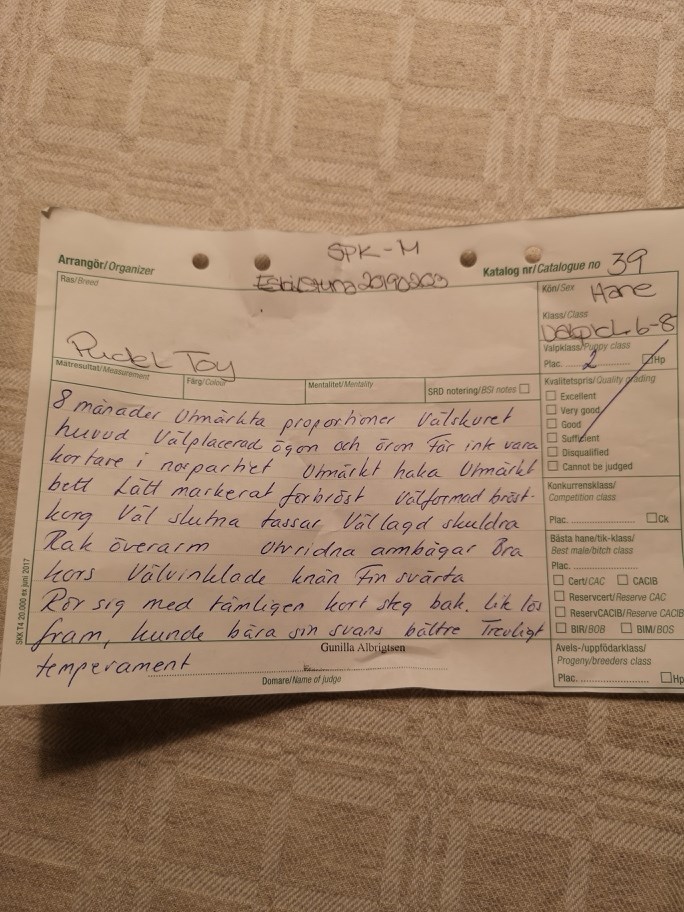 SPK-M
Arrangör/Organizer
Eskilstuna 20190203
Katalog nr/Catalogue no 39
Ras/Breed
Pudel Toy
Kön/Sex Hane
Klass/Class
Valpkl. 6-8
Valpklass/Puppy class
Plac. 2 Hp
Mätresultat/Measurement
Färg/Colour
Mentalitet/Mentality
SRD notering/BSI notes
Kvalitetspris/Quality grading
Excellent
Very good
Good
Sufficient
Disqualified
Cannot be judged
8 månader Utmärkta proportioner Välskuret
huvud Välplacerad ögon och öron Får ink vara
kortare i nospartiet Utmärkt haka Utmärkt
bett Lätt markerat förbröst Välformad bröst-
korg Väl slutna tassar Väl lagd skuldra
Rak överarm Utvridna armbågar Bra
kors Välvinklade knän Fin svärta
Rör sig med tämligen kort steg bak. lik lös
fram, kunde bära sin svans bättre Trevligt
temperament
Konkurrensklass/
Competition class
Plac. Ck
Bästa hane/tik-klass/
Best male/bitch class
Plac.
Cert/CAC CACIB
Reservcert/Reserve CAC
ReservCACIB/Reserve CACIB
BIR/BOB BIM/BOS
Avels-/uppfödarklass/
Progeny/breeders class
Plac. Hp
Gunilla Albrigtsen
Domare/Name of judge
SKK T4 20.000 ex juni 2017